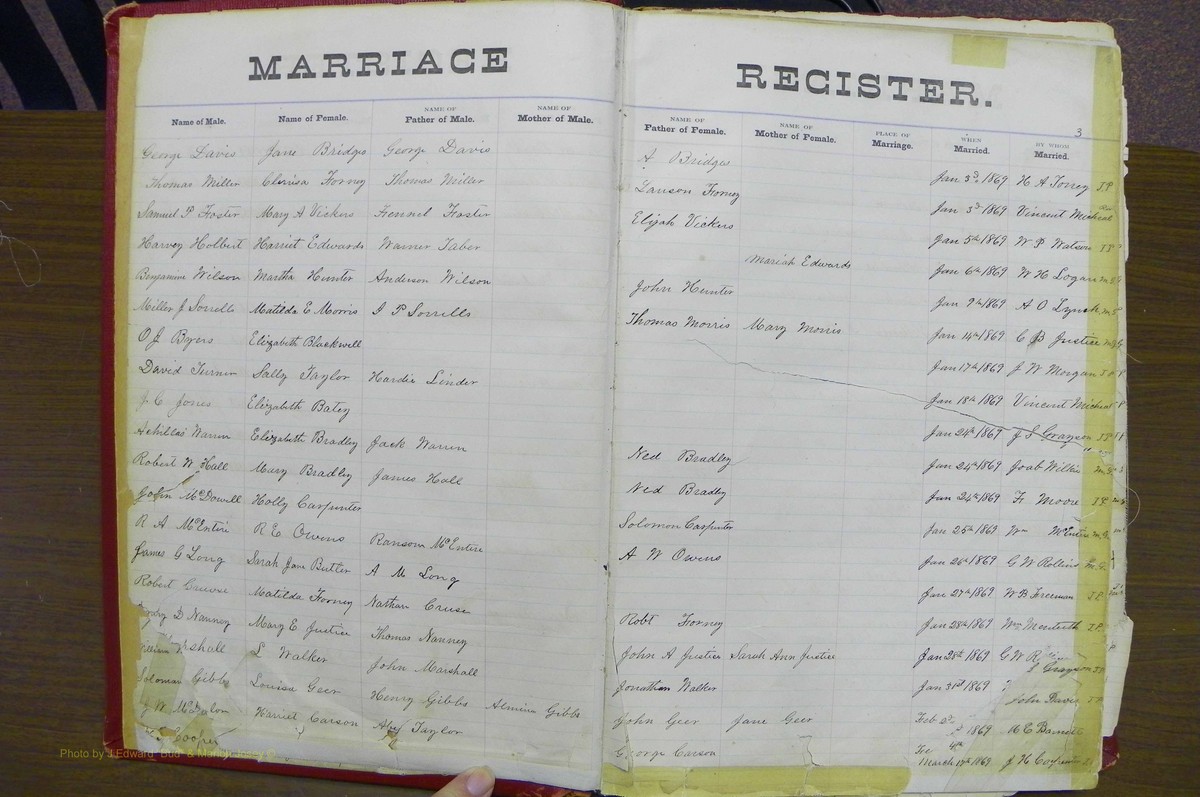 MARRIAGE
REGISTER.
3
Name of Male. Name of Female. NAME OF Father of Male. NAME OF Mother of Male. NAME OF Father of Female. NAME OF Mother of Female. PLACE OF Marriage. WHEN Married. BY WHOM Married.
George Davis Jane Bridges George Davis A Bridges Jan 3d 1869 H A Toney J.P
Thomas Miller Clarisa Forney Thomas Miller Lanson Forney Jan 3d 1869 Vincent Micheal
Samuel P Foster Mary A Vickers Fennel Foster Elijah Vickers Jan 5th 1869 W P Watson J P
Harvey Holbert Harriet Edwards Warner Taber Mariah Edwards Jan 6th 1869 W H Logan
Benjamine Wilson Martha Hunter Anderson Wilson John Hunter Jan 9th 1869 A O Lynch
Miller J Sorrells Matilda E Morris S P Sorrells Thomas Morris Mary Morris Jan 14th 1869 C B Justice
O J Byers Elizabeth Blackwell Jan 17th 1869 J W Morgan J P
David Turner Sally Taylor Hardie Linder Jan 18th 1869 Vincent Micheal
J C Jones Elizabeth Batey Jan 24th 1869 J S Grayson J P
Achillas Warren Elizabeth Bradley Jack Warren Ned Bradley Jan 24th 1869 Joab Wilkie
Robert W Hall Mary Bradley James Hall Ned Bradley Jan 24th 1869 Fr Moore J P
John McDowell Holly Carpenter Solomon Carpenter Jan 25th 1869 Wm McEntire
R A McEntire R E Owens Ransom McEntire A W Owens Jan 26th 1869 G W Rollins M.G.
James G Long Sarah Jane Butler A M Long Jan 27th 1869 W B Freeman J P
Robert Cruse Matilda Forney Nathan Cruse Robt Forney Jan 28th 1869 Wm Monteith J P.
D Nanney Mary E Justice Thomas Nanney John A Justice Sarah Ann Justice Jan 28th 1869 G W
William Marshall L Walker John Marshall Jonathan Walker Jan 31st 1869 Grayson
Soloman Gibbs Louisa Geer Henry Gibbs Almina Gibbs John Geer Jane Geer Feb 2d 1869 John Davis J P
Harriet Carson Taylor George Carson Feb 4th
Cooper March 17th 1869 J H
Photo by J.Edward "Bud" &